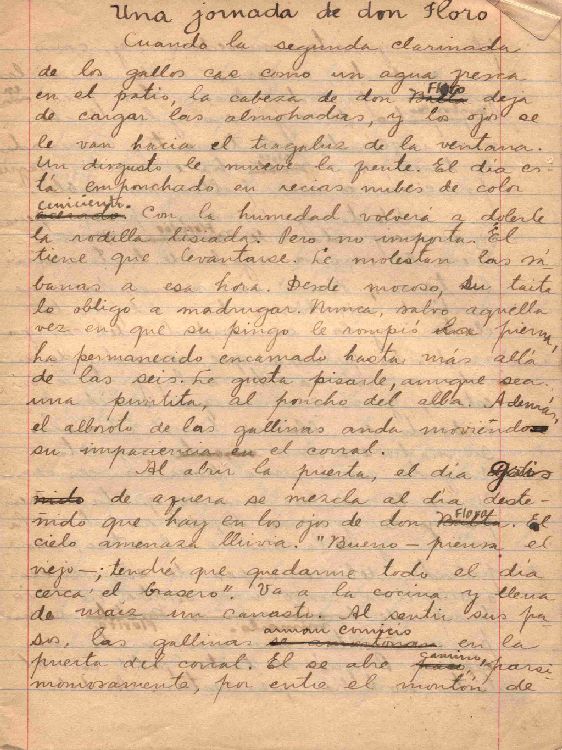 Una jornada de don Floro
Cuando la segunda clarinada
de los gallos cae como un agua fresca
en el patio, la cabeza de don Floro deja
de cargar las almohadas, y los ojos se
le van hacia el tragaluz de la ventana.
Un disgusto le mueve la frente. El día es-
tá emponchado en recias nubes de color
ceniciento. Con la humedad volverá a dolerle
la rodilla lisiada. Pero no importa. Él
tiene que levantarse. Le molestan las sá
banas a esa hora. Desde mocoso, su taita
lo obligó a madrugar. Nunca, salvo aquella
vez en que su pingo le rompió la pierna,
ha permanecido encamado hasta más allá
de las seis. Le gusta pisarle, aunque sea
una puntita, al poncho del alba. Además,
el alboroto de las gallinas anda moviendo
su impaciencia en el corral.
Al abrir la puerta, el día gris
de afuera se mezcla al día deste-
ñido que hay en los ojos de don Floro. El
cielo amenaza lluvia. "Bueno – piensa el
viejo –; tendré que quedarme todo el día
cerca el brasero". Va a la cocina y llena
de maíz un canasto. Al sentir sus pa
sos, las gallinas arman comicio en la
puerta del corral. Él se abre camino, parsi
moniosamente, por entre el montón de